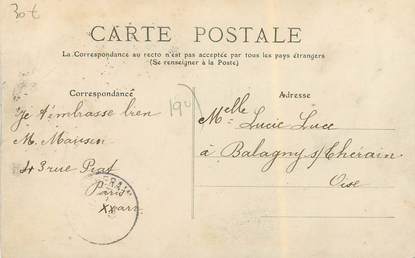 30€
CARTE POSTALE
La Correspondance au recto n'est pas acceptée par tous les pays étrangers
(Se renseigner à la Poste)
Correspondance
Je t'embrasse bien
M. Mausen
43 rue Piat
Paris
XX arr
190
Adresse
Melle Lucie Luce
à Balagny s/ Thérain
Oise